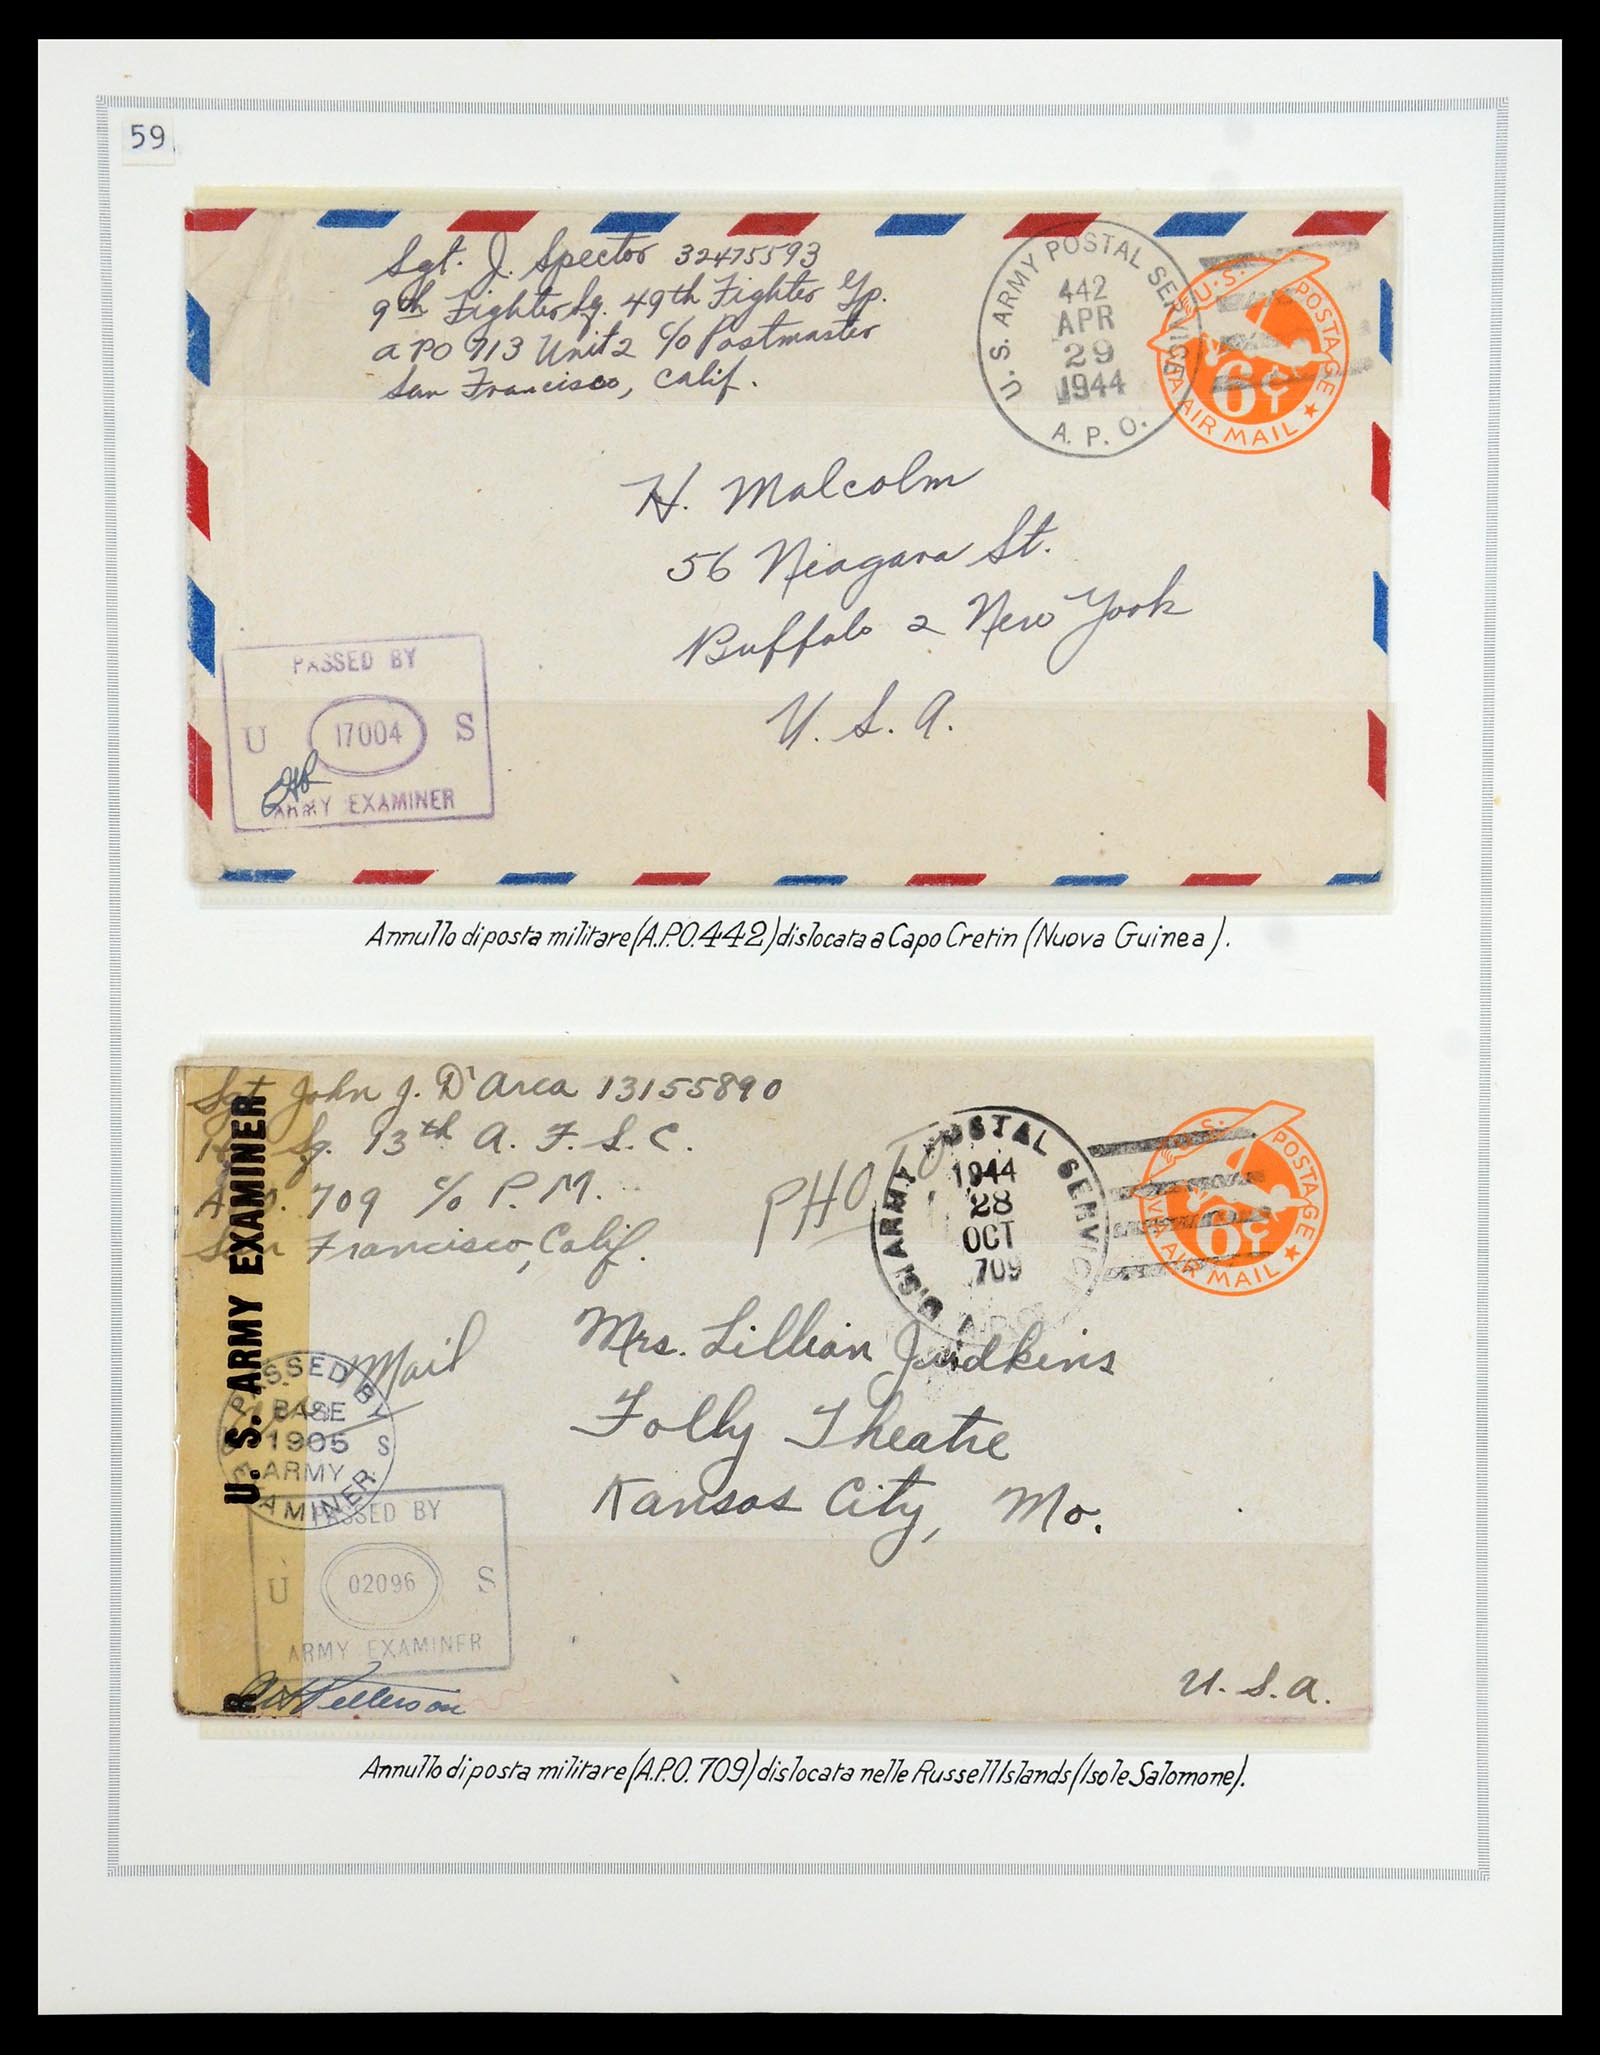 59
Sgt. J. Spector 32475593
9th Fighter Sq. 49th Fighter Gp.
APO 713 Unit 2 c/o Postmaster
San Francisco, Calif.
U.S. ARMY POSTAL SERVICE
442
APR
29
1944
A.P.O.
U.S. POSTAGE
6¢
VIA AIR MAIL
H. Malcolm
56 Niagara St.
Buffalo 2 New York
U. S. A.
PASSED BY
U 17004 S
ARMY EXAMINER
Annullo di posta militare (A.P.O. 442) dislocata a Capo Cretin (Nuova Guinea).
Sgt John J. D'Arca 13155890
Sq. 13th A. F. S. C.
A.P.O. 709 c/o P.M.
San Francisco, Calif.
PHOTO
U.S. ARMY POSTAL SERVICE
1944
28
OCT
709
A.P.O.
U.S. POSTAGE
6¢
VIA AIR MAIL
Mrs. Lillian Judkins
Folly Theatre
Kansas City, Mo.
U. S. A.
Mail
U. S. ARMY EXAMINER
R
PASSED BY
BASE
1905 S
ARMY
EXAMINER
PASSED BY
U 02096 S
ARMY EXAMINER
Annullo di posta militare (A.P.O. 709) dislocata nelle Russell Islands (Isole Salomone).